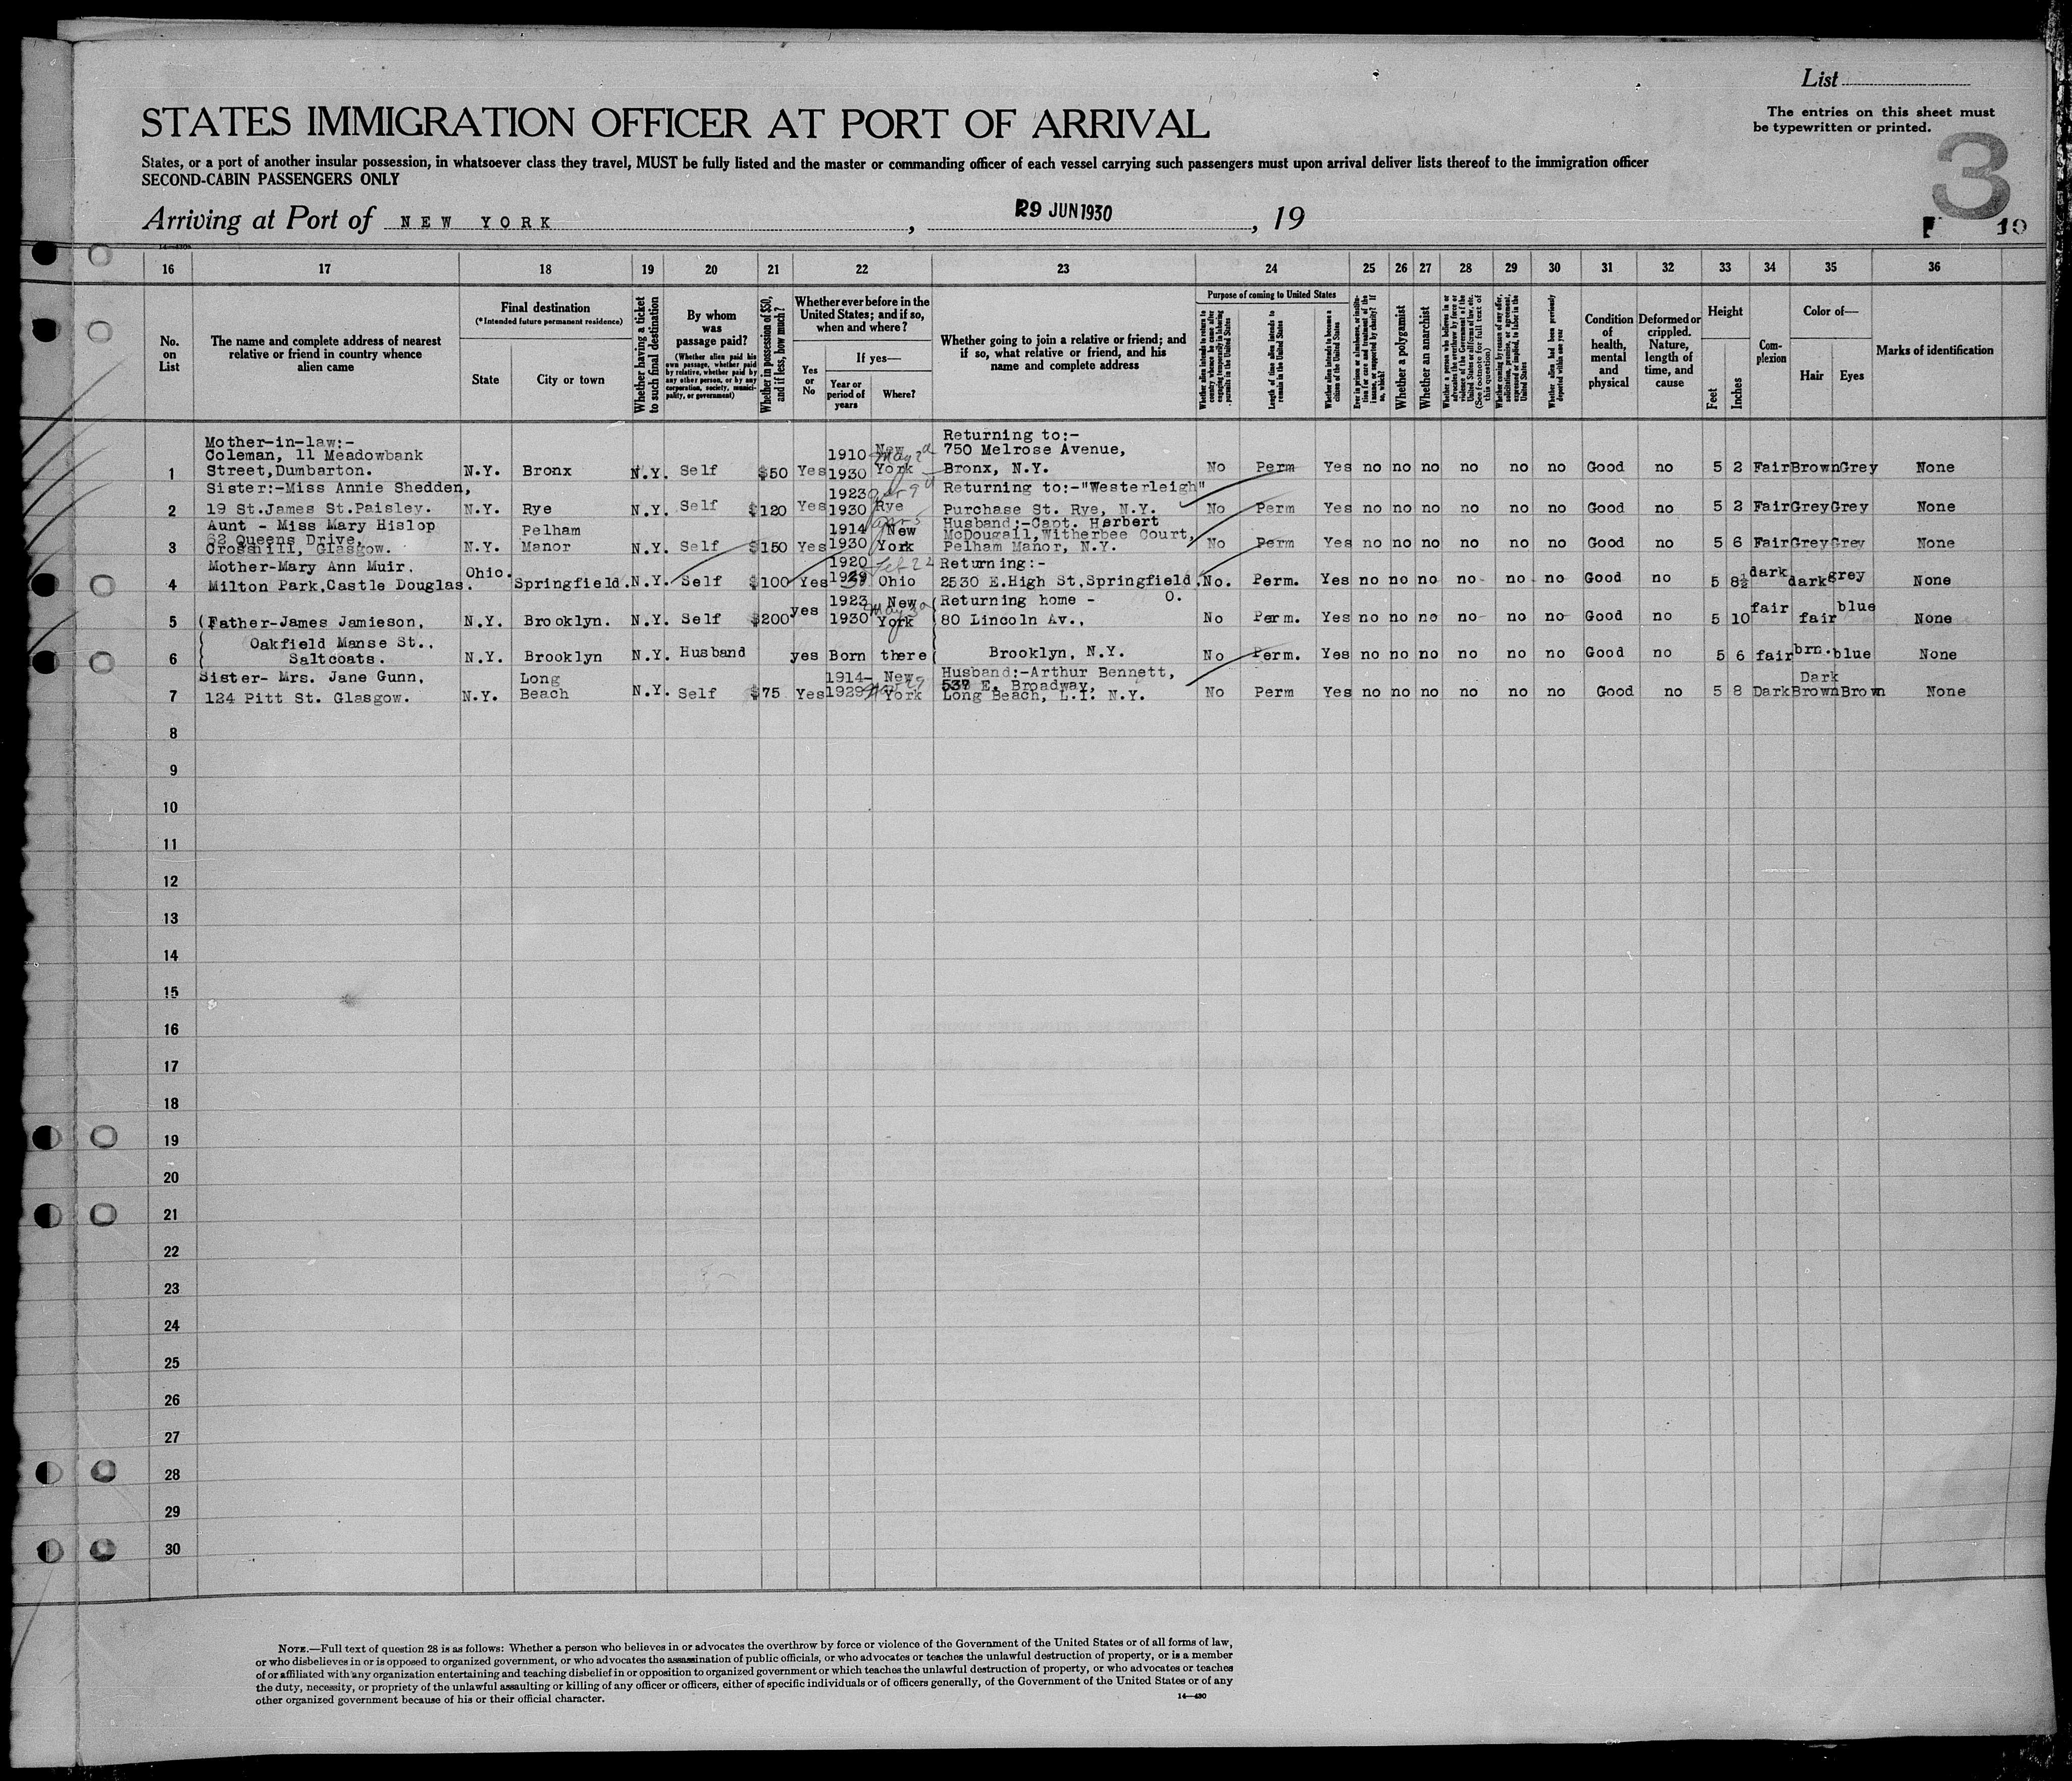 List
The entries on this sheet must
be typewritten or printed.
STATES IMMIGRATION OFFICER AT PORT OF ARRIVAL
States, or a port of another insular possession, in whatsoever class they travel, MUST be fully listed and the master or commanding officer of each vessel carrying such passengers must upon arrival deliver lists thereof to the immigration officer
SECOND-CABIN PASSENGERS ONLY
3
Arriving at Port of NEW YORK, 29 JUN 1930, 19
10
16 17 18 19 20 21 22 23 24 25 26 27 28 29 30 31 32 33 34 35 36
No. on List
The name and complete address of nearest relative or friend in country whence alien came
Final destination
(*Intended future permanent residence)
State
City or town
Whether having a ticket to such final destination
By whom was passage paid?
(Whether alien paid his own passage, whether paid by relative, whether paid by any other person, or by any corporation, society, municipality, or government)
Whether in possession of $50, and if less, how much?
Whether ever before in the United States; and if so, when and where?
Yes or No
If yes—
Year or period of years
Where?
Whether going to join a relative or friend; and if so, what relative or friend, and his name and complete address
Purpose of coming to United States
Length of time alien intends to remain in the United States
Whether alien intends to become a citizen of the United States
Whether a polygamist
Whether an anarchist
(See footnote for full text of this question)
Whether alien had been previously deported within one year
Condition of health, mental and physical
Deformed or crippled. Nature, length of time, and cause
Height
Feet
Inches
Complexion
Color of—
Hair
Eyes
Marks of identification
1 Mother-in-law:- Coleman, 11 Meadowbank Street, Dumbarton. N.Y. Bronx N.Y. Self $50 Yes 1910 1930 New York Returning to:- 750 Melrose Avenue, Bronx, N.Y. No Perm Yes no no no no no no Good no 5 2 Fair Brown Grey None
2 Sister:-Miss Annie Shedden, 19 St.James St.Paisley. N.Y. Rye N.Y. Self $120 Yes 1923 1930 Rye Returning to:-"Westerleigh" Purchase St. Rye, N.Y. No Perm Yes no no no no no no Good no 5 2 Fair Grey Grey None
3 Aunt - Miss Mary Hislop 62 Queens Drive, Crosshill, Glasgow. N.Y. Pelham Manor N.Y. Self $150 Yes 1914 1930 New York Husband:-Capt. Herbert McDougall, Witherbee Court, Pelham Manor, N.Y. No Perm Yes no no no no no no Good no 5 6 Fair Grey Grey None
4 Mother-Mary Ann Muir. Milton Park, Castle Douglas. Ohio. Springfield. N.Y. Self $100 Yes 1920 1929 30 Feb 22 Ohio Returning:- 2530 E.High St, Springfield. O. No. Perm. Yes no no no no no no Good no 5 8½ dark dark grey None
5 (Father-James Jamieson, N.Y. Brooklyn. N.Y. Self $200 yes 1923 1930 New York May 30 (Returning home - 80 Lincoln Av., No Perm. Yes no no no no no no Good no 5 10 fair fair blue None
6 Oakfield Manse St., Saltcoats. N.Y. Brooklyn N.Y. Husband yes Born there Brooklyn, N.Y. No Perm. Yes no no no no no no Good no 5 6 fair brn. blue None
7 Sister- Mrs. Jane Gunn, 124 Pitt St. Glasgow. N.Y. Long Beach N.Y. Self $75 Yes 1914- 1929 New York Husband:-Arthur Bennett, 537 E. Broadway, Long Beach, L.I. N.Y. No Perm Yes no no no no no no Good no 5 8 Dark Dark Brown Brown None
8
9
10
11
12
13
14
15
16
17
18
19
20
21
22
23
24
25
26
27
28
29
30
NOTE.—Full text of question 28 is as follows: Whether a person who believes in or advocates the overthrow by force or violence of the Government of the United States or of all forms of law,
or who disbelieves in or is opposed to organized government, or who advocates the assassination of public officials, or who advocates or teaches the unlawful destruction of property, or is a member
of or affiliated with any organization entertaining and teaching disbelief in or opposition to organized government or which teaches the unlawful destruction of property, or who advocates or teaches
the duty, necessity, or propriety of the unlawful assaulting or killing of any officer or officers, either of specific individuals or of officers generally, of the Government of the United States or of any
other organized government because of his or their official character.
14—430